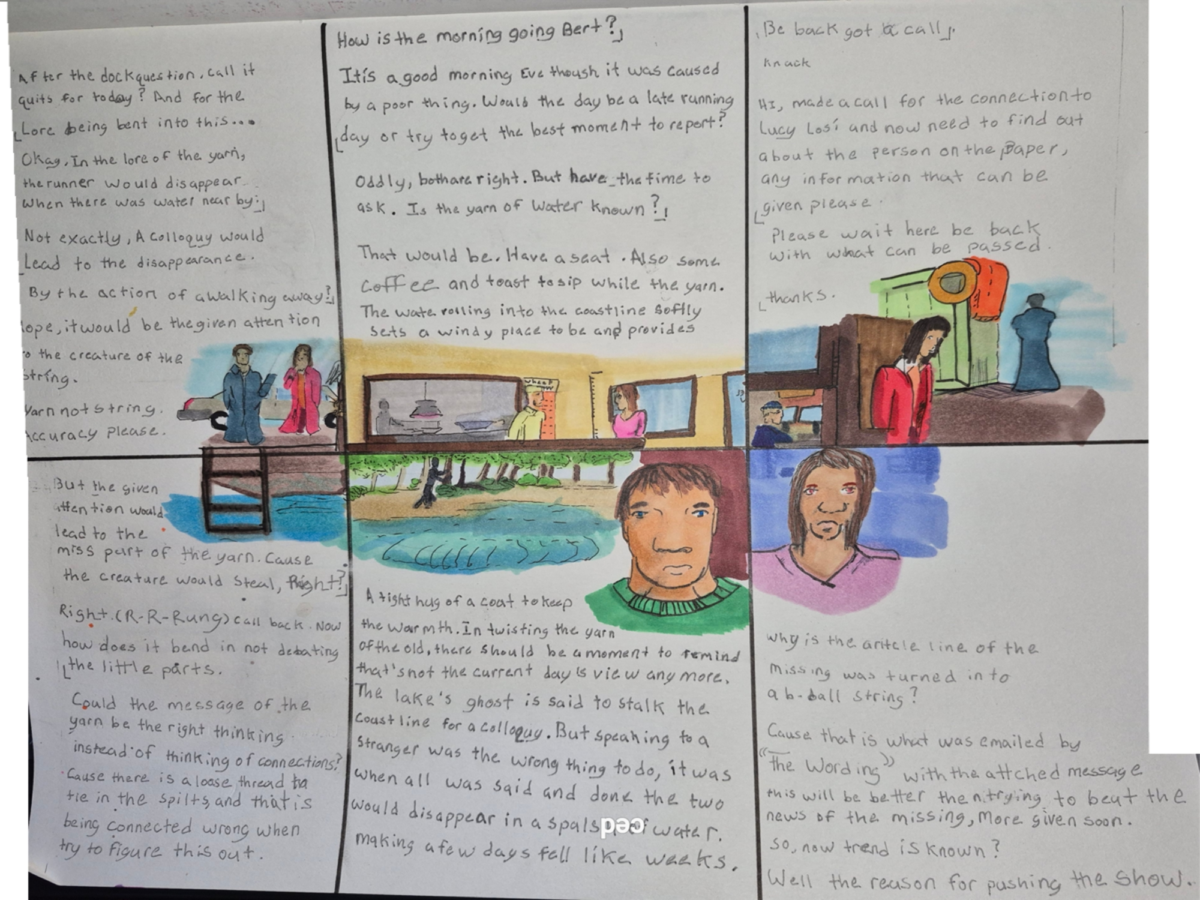 After the dock question, call it
quits for today? And for the
Lore being bent into this...
Okay, In the lore of the yarn,
the runner would disappear
when there was water near by.
Not exactly, A Colloquy would
Lead to the disappearance.
By the action of a walking away?
ope, it would be the given attention
o the creature of the
string.
Yarn not string.
Accuracy please.
How is the morning going Bert?
It's a good morning Eve though it was caused
by a poor thing. Would the day be a late running
day or try to get the best moment to report?
Oddly, both are right. But have the time to
ask. Is the yarn of water known?
That would be. Have a seat. Also some
coffee and toast to sip while the yarn.
The water rolling into the coastline softly
sets a windy place to be and provides
Be back got a call.
Knack
Hi, made a call for the connection to
Lucy Losi and now need to find out
about the person on the Paper,
any information that can be
given please.
Please wait here be back
with what can be passed.
thanks.
But the given
attention would
lead to the
miss part of the yarn. Cause
the creature would steal, Right?
Right. (R-R-Rung) call back. Now
how does it bend in not debating
the little parts.
Could the message of the
yarn be the right thinking
instead of thinking of connections?
Cause there is a loose thread to
tie in the spilts and that is
being connected wrong when
try to figure this out.
A tight hug of a coat to keep
the warmth. In twisting the yarn
of the old, there should be a moment to remind
that's not the current day is view any more.
The lake's ghost is said to stalk the
coast line for a colloquy. But speaking to a
stranger was the wrong thing to do, it was
when all was said and done the two
would disappear in a spals of water.
making a few days fell like weeks.
ced
why is the aritcle line of the
missing was turned in to
a b-ball string?
Cause that is what was emailed by
"The Wording" with the attched message
this will be better then trying to beat the
news of the missing, More given soon.
So, now trend is known?
Well the reason for pushing the show.